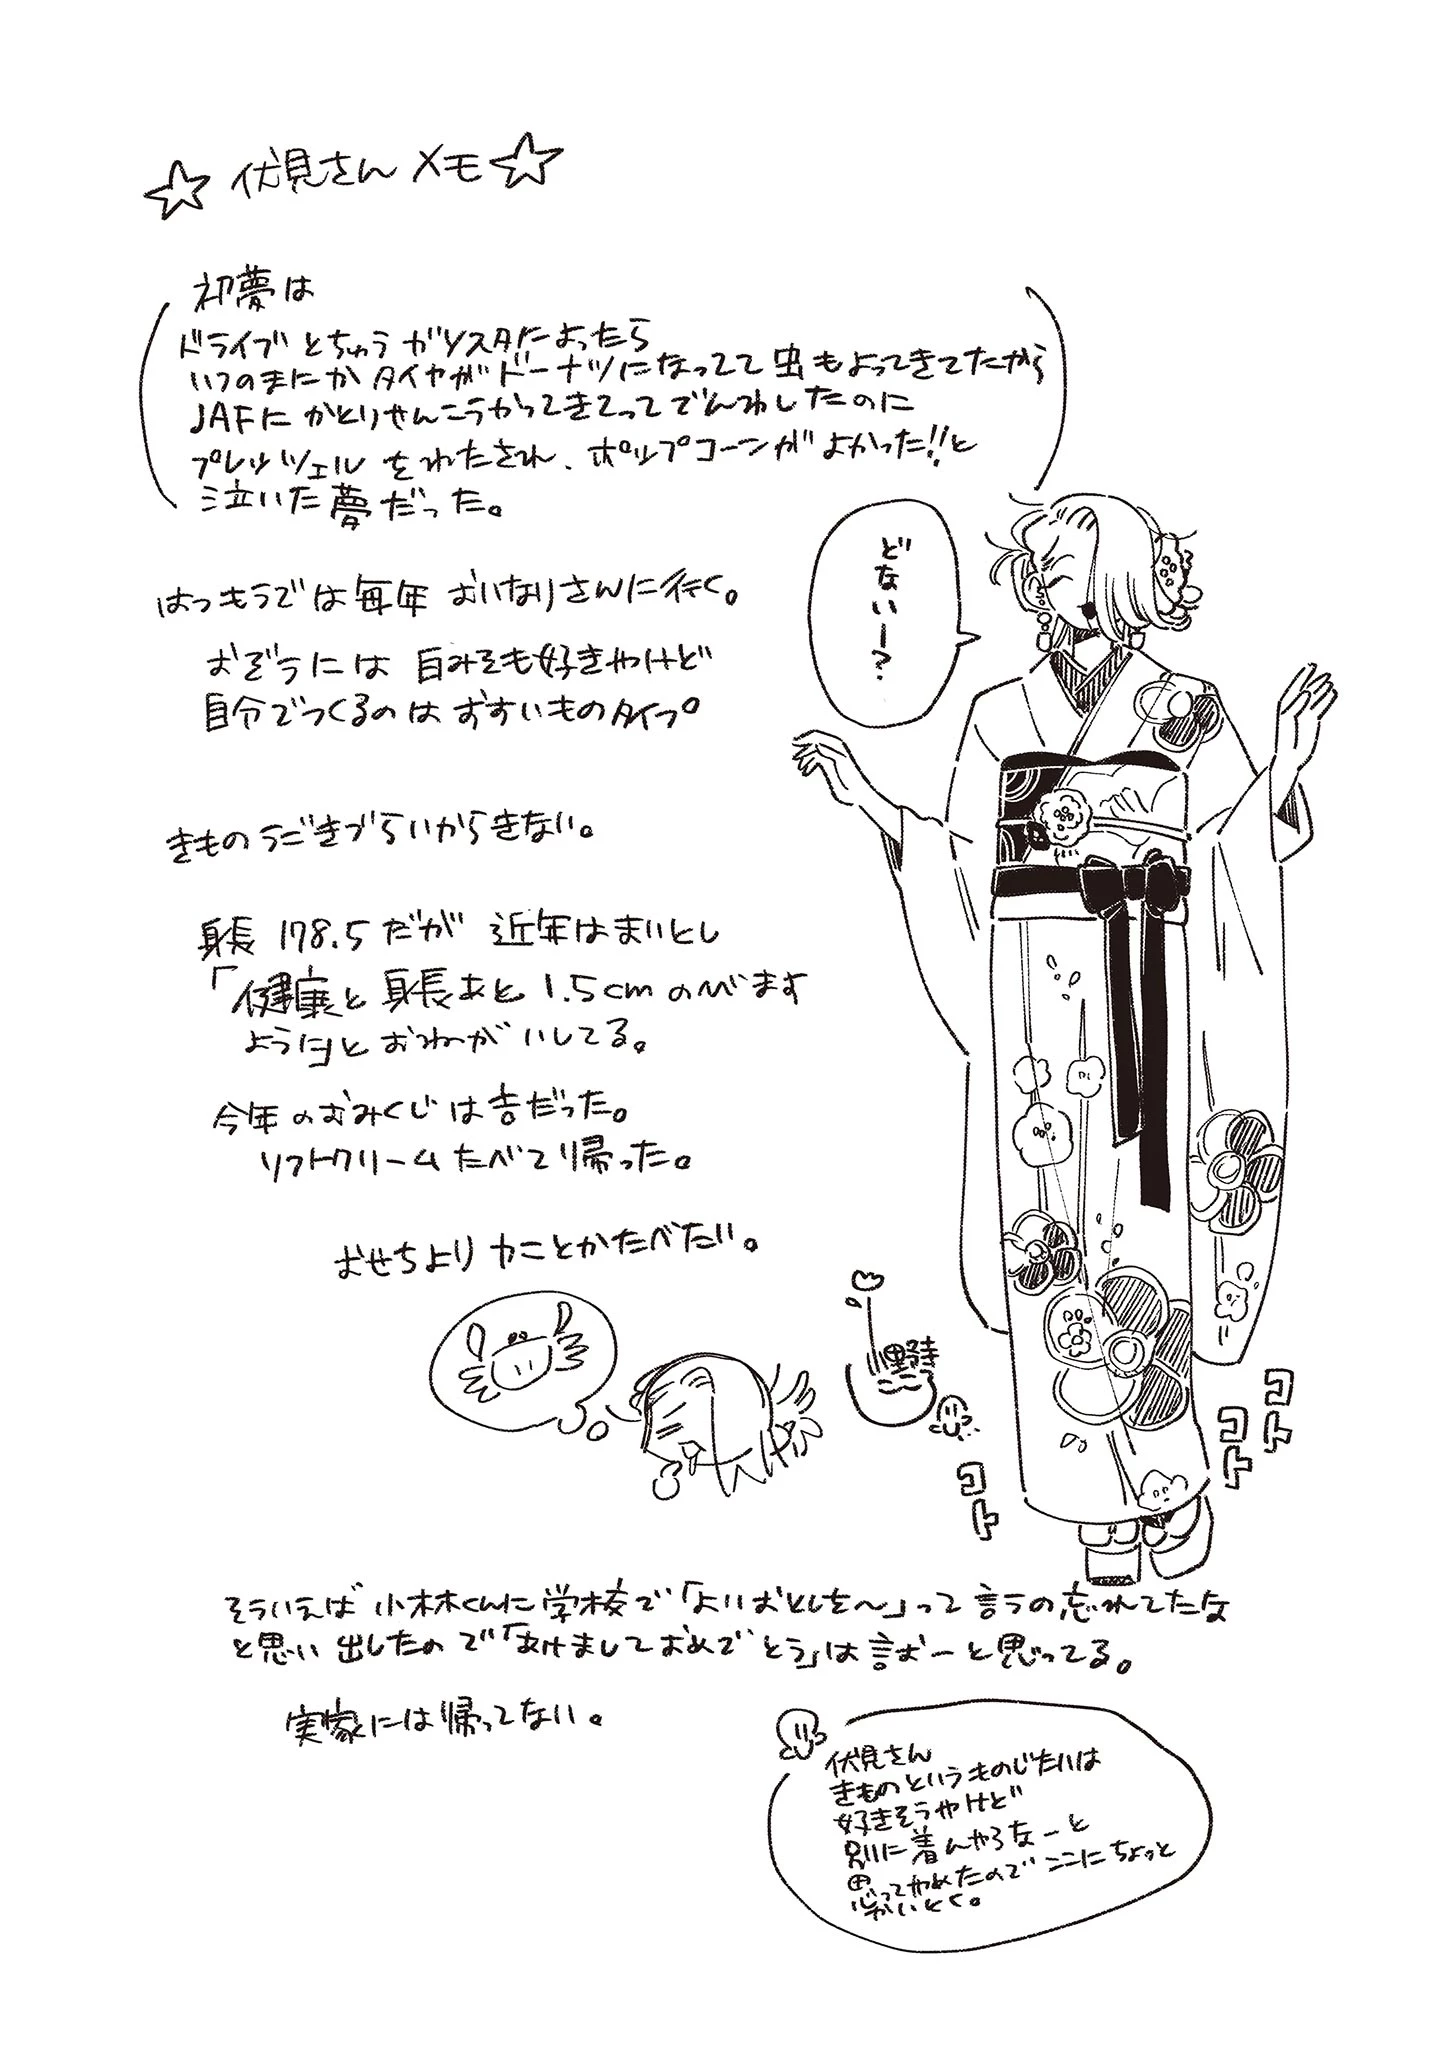 ☆ 伏見さんメモ ☆
初夢は
ドライブとちゅうガソスタによったら
いつのまにかタイヤがドーナツになってて虫もよってきてたから
JAFにかとりせんこうかってきてってでんわしたのに
プレッツェルをわたされ、ポップコーンがよかった!!と
泣いた夢だった。
はつもうでは毎年おいなりさんに行く。
おぞうには白みそも好きやけど
自分でつくるのはおすいものタイプ
どないー?
きものうごきづらいからきない。
身長178.5だが近年はまいとし
「健康と身長あと1.5cmのびます
ように」とおねがいしてる。
今年のおみくじは吉だった。
ソフトクリームたべて帰った。
おせちよりカニとかたべたい。
コト
コト
コト
そういえば小林くんに学校で「よいおとしを〜」って言うの忘れてたな
と思い出したので「あけましておめでとう」は言おーと思ってる。
実家には帰ってない。
伏見さん
きものというものじたいは
好きそうやけど
別に着んやろなーと
思ってやめたのでここにちょっと
かいとく。